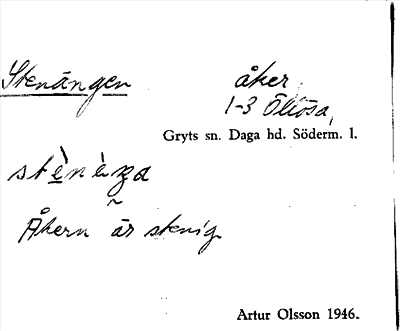 Stenängen åker
1-3 Öllösa,
Gryts sn. Daga hd. Söderm. l.
Åkern är stenig
Artur Olsson 1946.